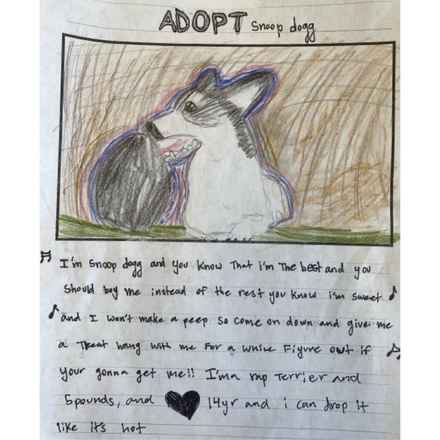 ADOPT Snoop dogg
I'm Snoop dogg and you know that i'm the best and you
should buy me instead of the rest you know i'm sweet
and I won't make a peep so come on down and give me
a treat hang with me for a while figure out if
your gonna get me!! I'm a terrier and
5pounds, and 14yr and i can drop it
like its hot